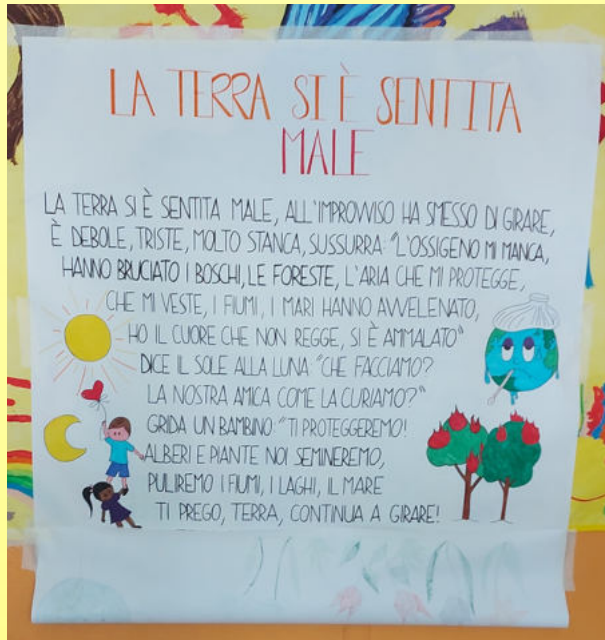 LA TERRA SI È SENTITA
MALE
LA TERRA SI È SENTITA MALE, ALL'IMPROVVISO HA SMESSO DI GIRARE,
È DEBOLE, TRISTE, MOLTO STANCA, SUSSURRA: "L'OSSIGENO MI MANCA,
HANNO BRUCIATO I BOSCHI, LE FORESTE, L'ARIA CHE MI PROTEGGE,
CHE MI VESTE, I FIUMI, I MARI HANNO AVVELENATO,
HO IL CUORE CHE NON REGGE, SI È AMMALATO"
DICE IL SOLE ALLA LUNA "CHE FACCIAMO?
LA NOSTRA AMICA COME LA CURIAMO?"
GRIDA UN BAMBINO: "TI PROTEGGEREMO!
ALBERI E PIANTE NOI SEMINEREMO,
PULIREMO I FIUMI, I LAGHI, IL MARE
TI PREGO, TERRA, CONTINUA A GIRARE!